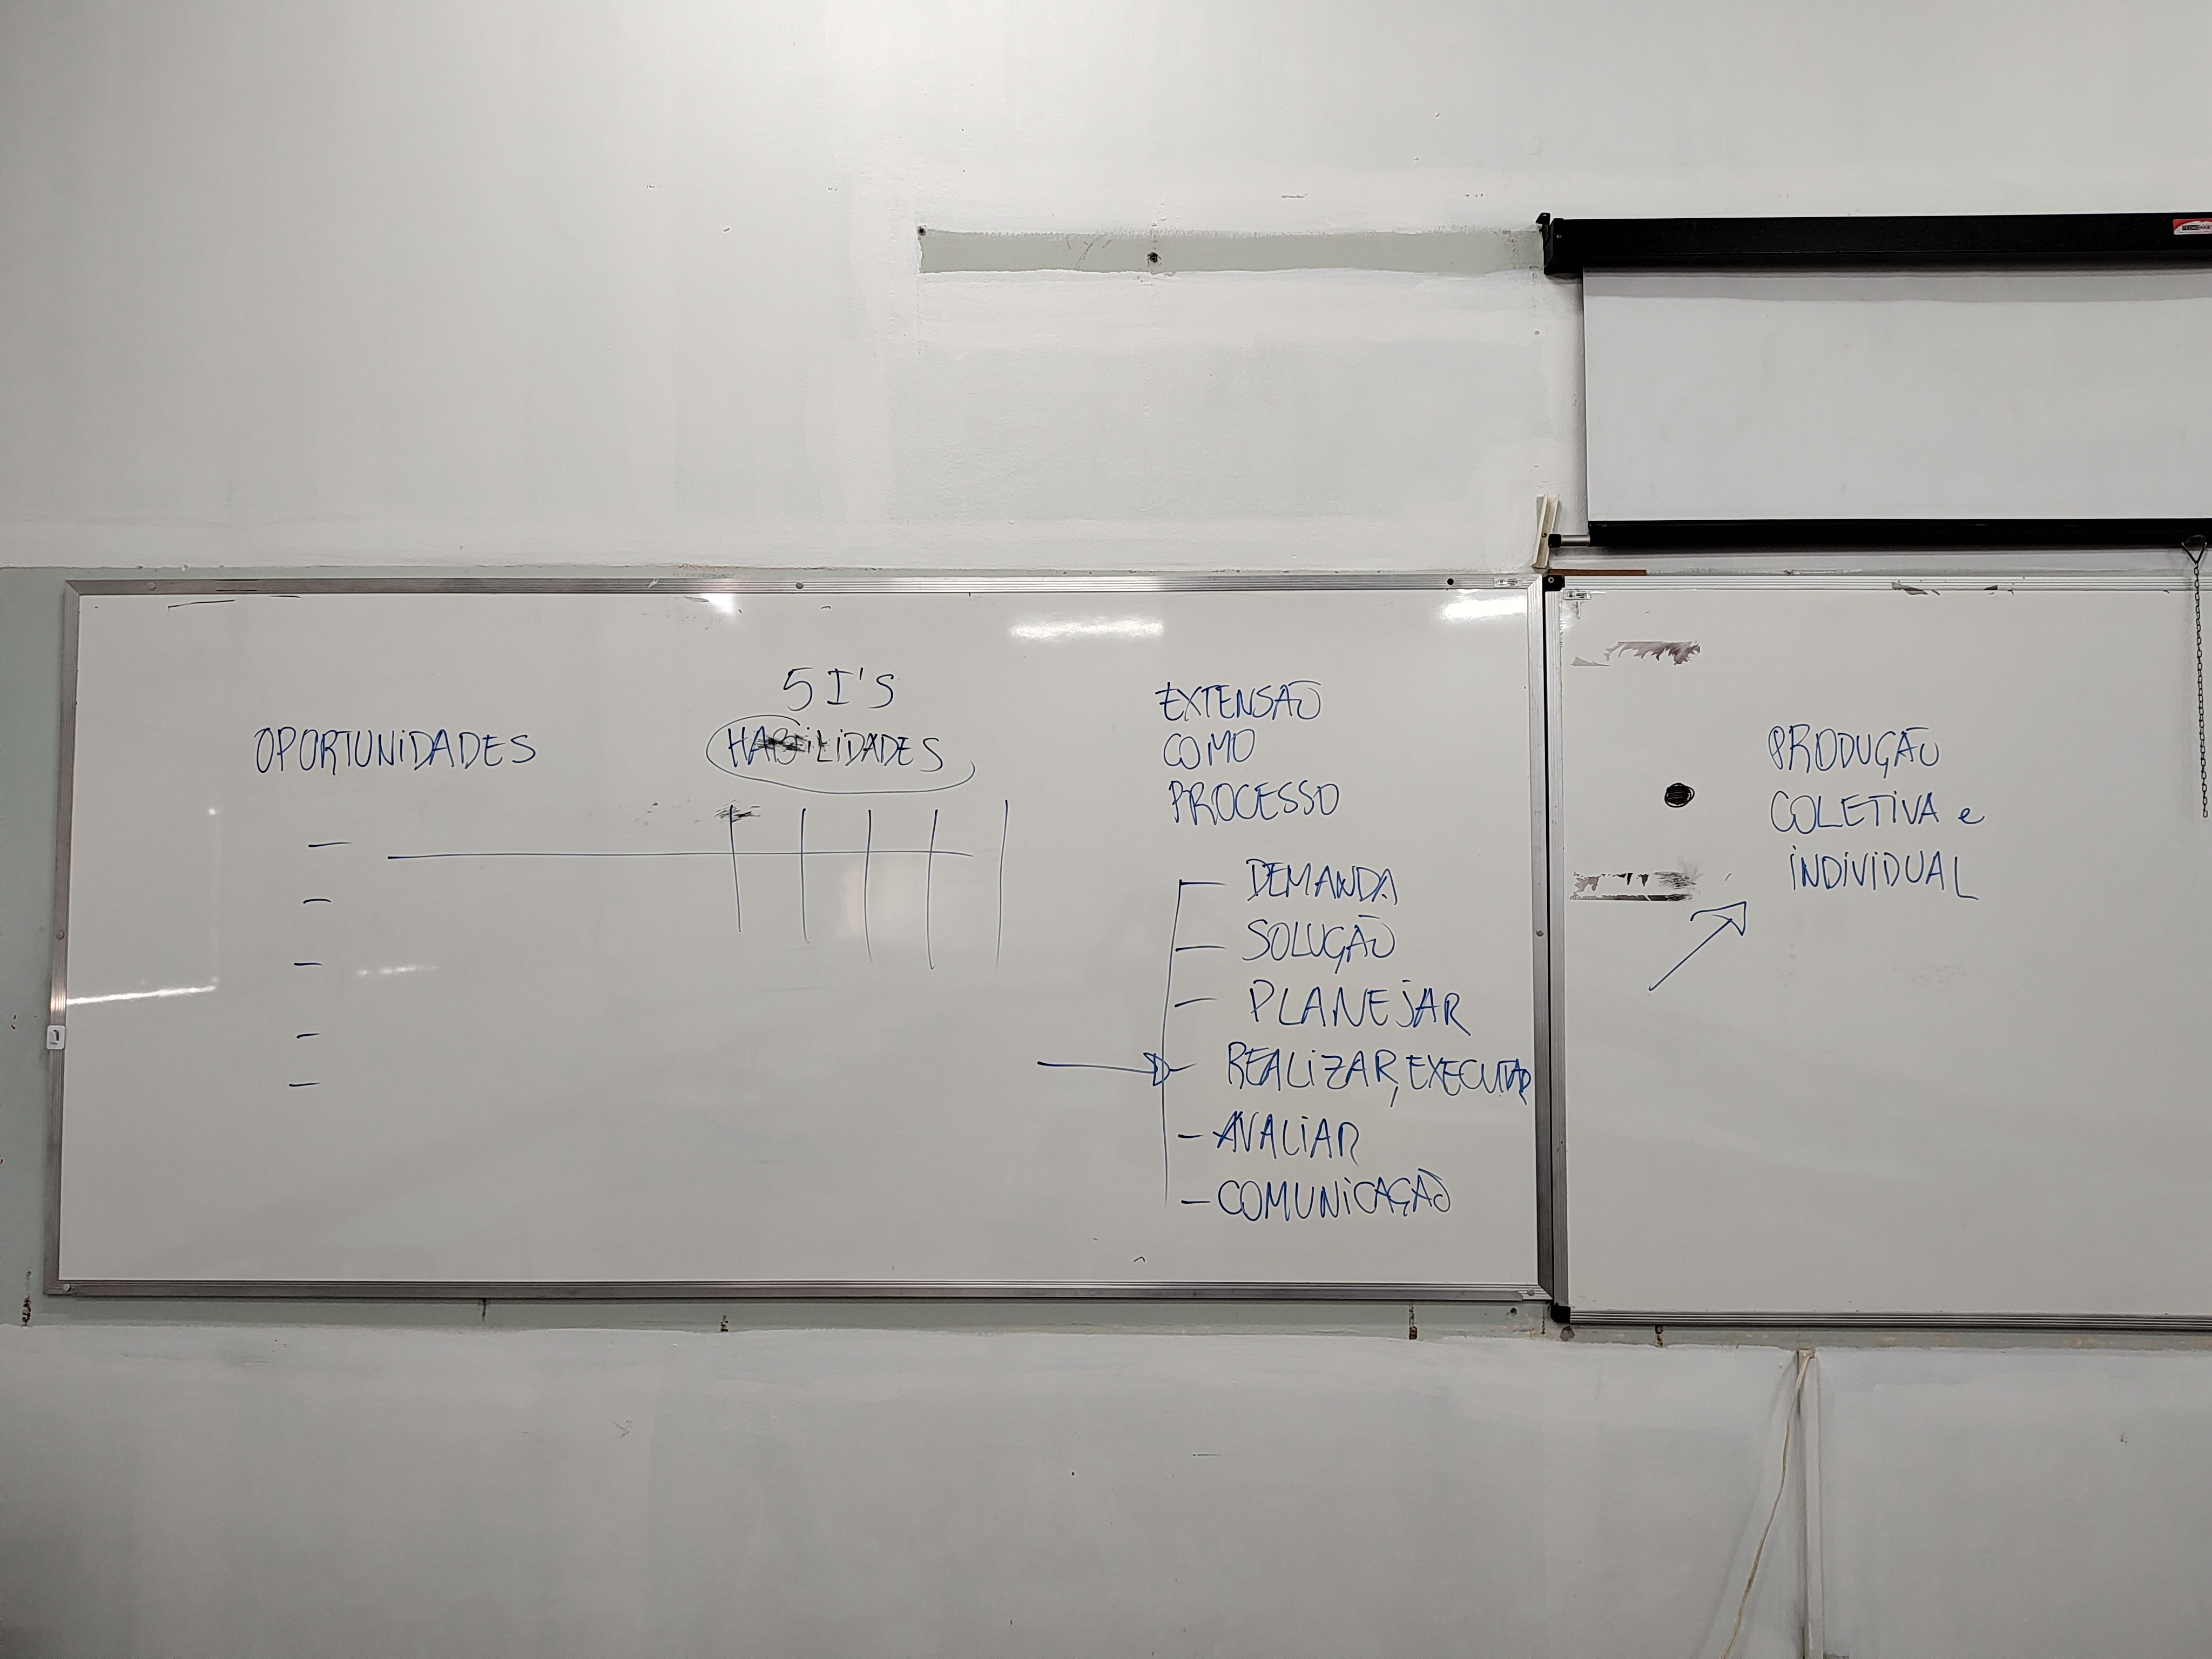 OPORTUNIDADES
5 I'S
HABILIDADES
EXTENSÃO
COMO
PROCESSO
DEMANDA
SOLUÇÃO
PLANEJAR
REALIZAR, EXECUTAR
AVALIAR
COMUNICAÇÃO
PRODUÇÃO
COLETIVA e
INDIVIDUAL